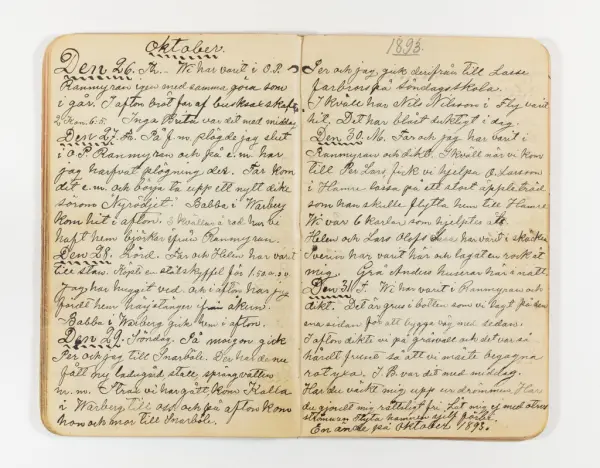 Oktober.
Den 26. Th. Vi har varit i O.P.
Ranmyran igen med samma göra som
i går. I afton bröt far af busksaxskaft
2 Kon. 6.5. Inga Brita var det med middag
Den 27. Fr. På f.m. plögde jag slut
i O P Ranmyran och på e.m. har
jag harfvat plögning der. Far kom
dit e.m. och börja ta upp ett nytt dike
Nyrödjet. Babba i Warberg
kom hit i afton. I kvällen å rod har vi
haft hem björkar ifrån Ranmyran.
Den 28. Lörd. Far och Helen har varit
till stan. Köpte en stålskyffel för 1 50
Jag har huggit ved och i afton har jag
fördt hem härstänger från åkern.
Babba i Warberg gick hem i afton.
Den 29. Söndag. På morgon gick
Per och jag till Snarböle. Der har de nu
fått ny ladugård stall, sprängvatten
m. m. Strax vi har gått, kom Kalla
i Warberg till oss och på afton kom
hon och mor till Snarböle.
1893.
Per och jag gick derifrån till Lasse
farbrors på Söndagsskola.
I kväll har Nils Nilsson i Fly varit
hit. Det har blåst duktigt i dag.
Den 30. M. Far och jag har varit i
Ranmyran och dikt. I kväll när vi kom
till Per Lars fick vi hjelpa O. Larsson
i Hamre lassa på ett stort äppleträd
som han skulle flytta hem till Hamre
Vi var 6 karlar som hjelptes åt.
Helen och Lars Olofs har varit i skocken
Svenn har varit här och lagat en rock åt
mig. Grå Anders huserar här i natt.
Den 31. T. Vi har varit i Ranmyran och
dikt. Det är grus i botten som vi lagt på den
ena sidan för att bygga väg med sedan.
I afton dikte vi på gräsvall och det var så
hårdt fruset så att vi måste begagna
rotyxa. I.B. var det med middag.
Har du väckt mig upp ur drömmen Har
du gjordt mig rätteligt fri Låt mig ej med
strömmen flyta hamnen sjelf förbi.
En ände på Oktober 1893.